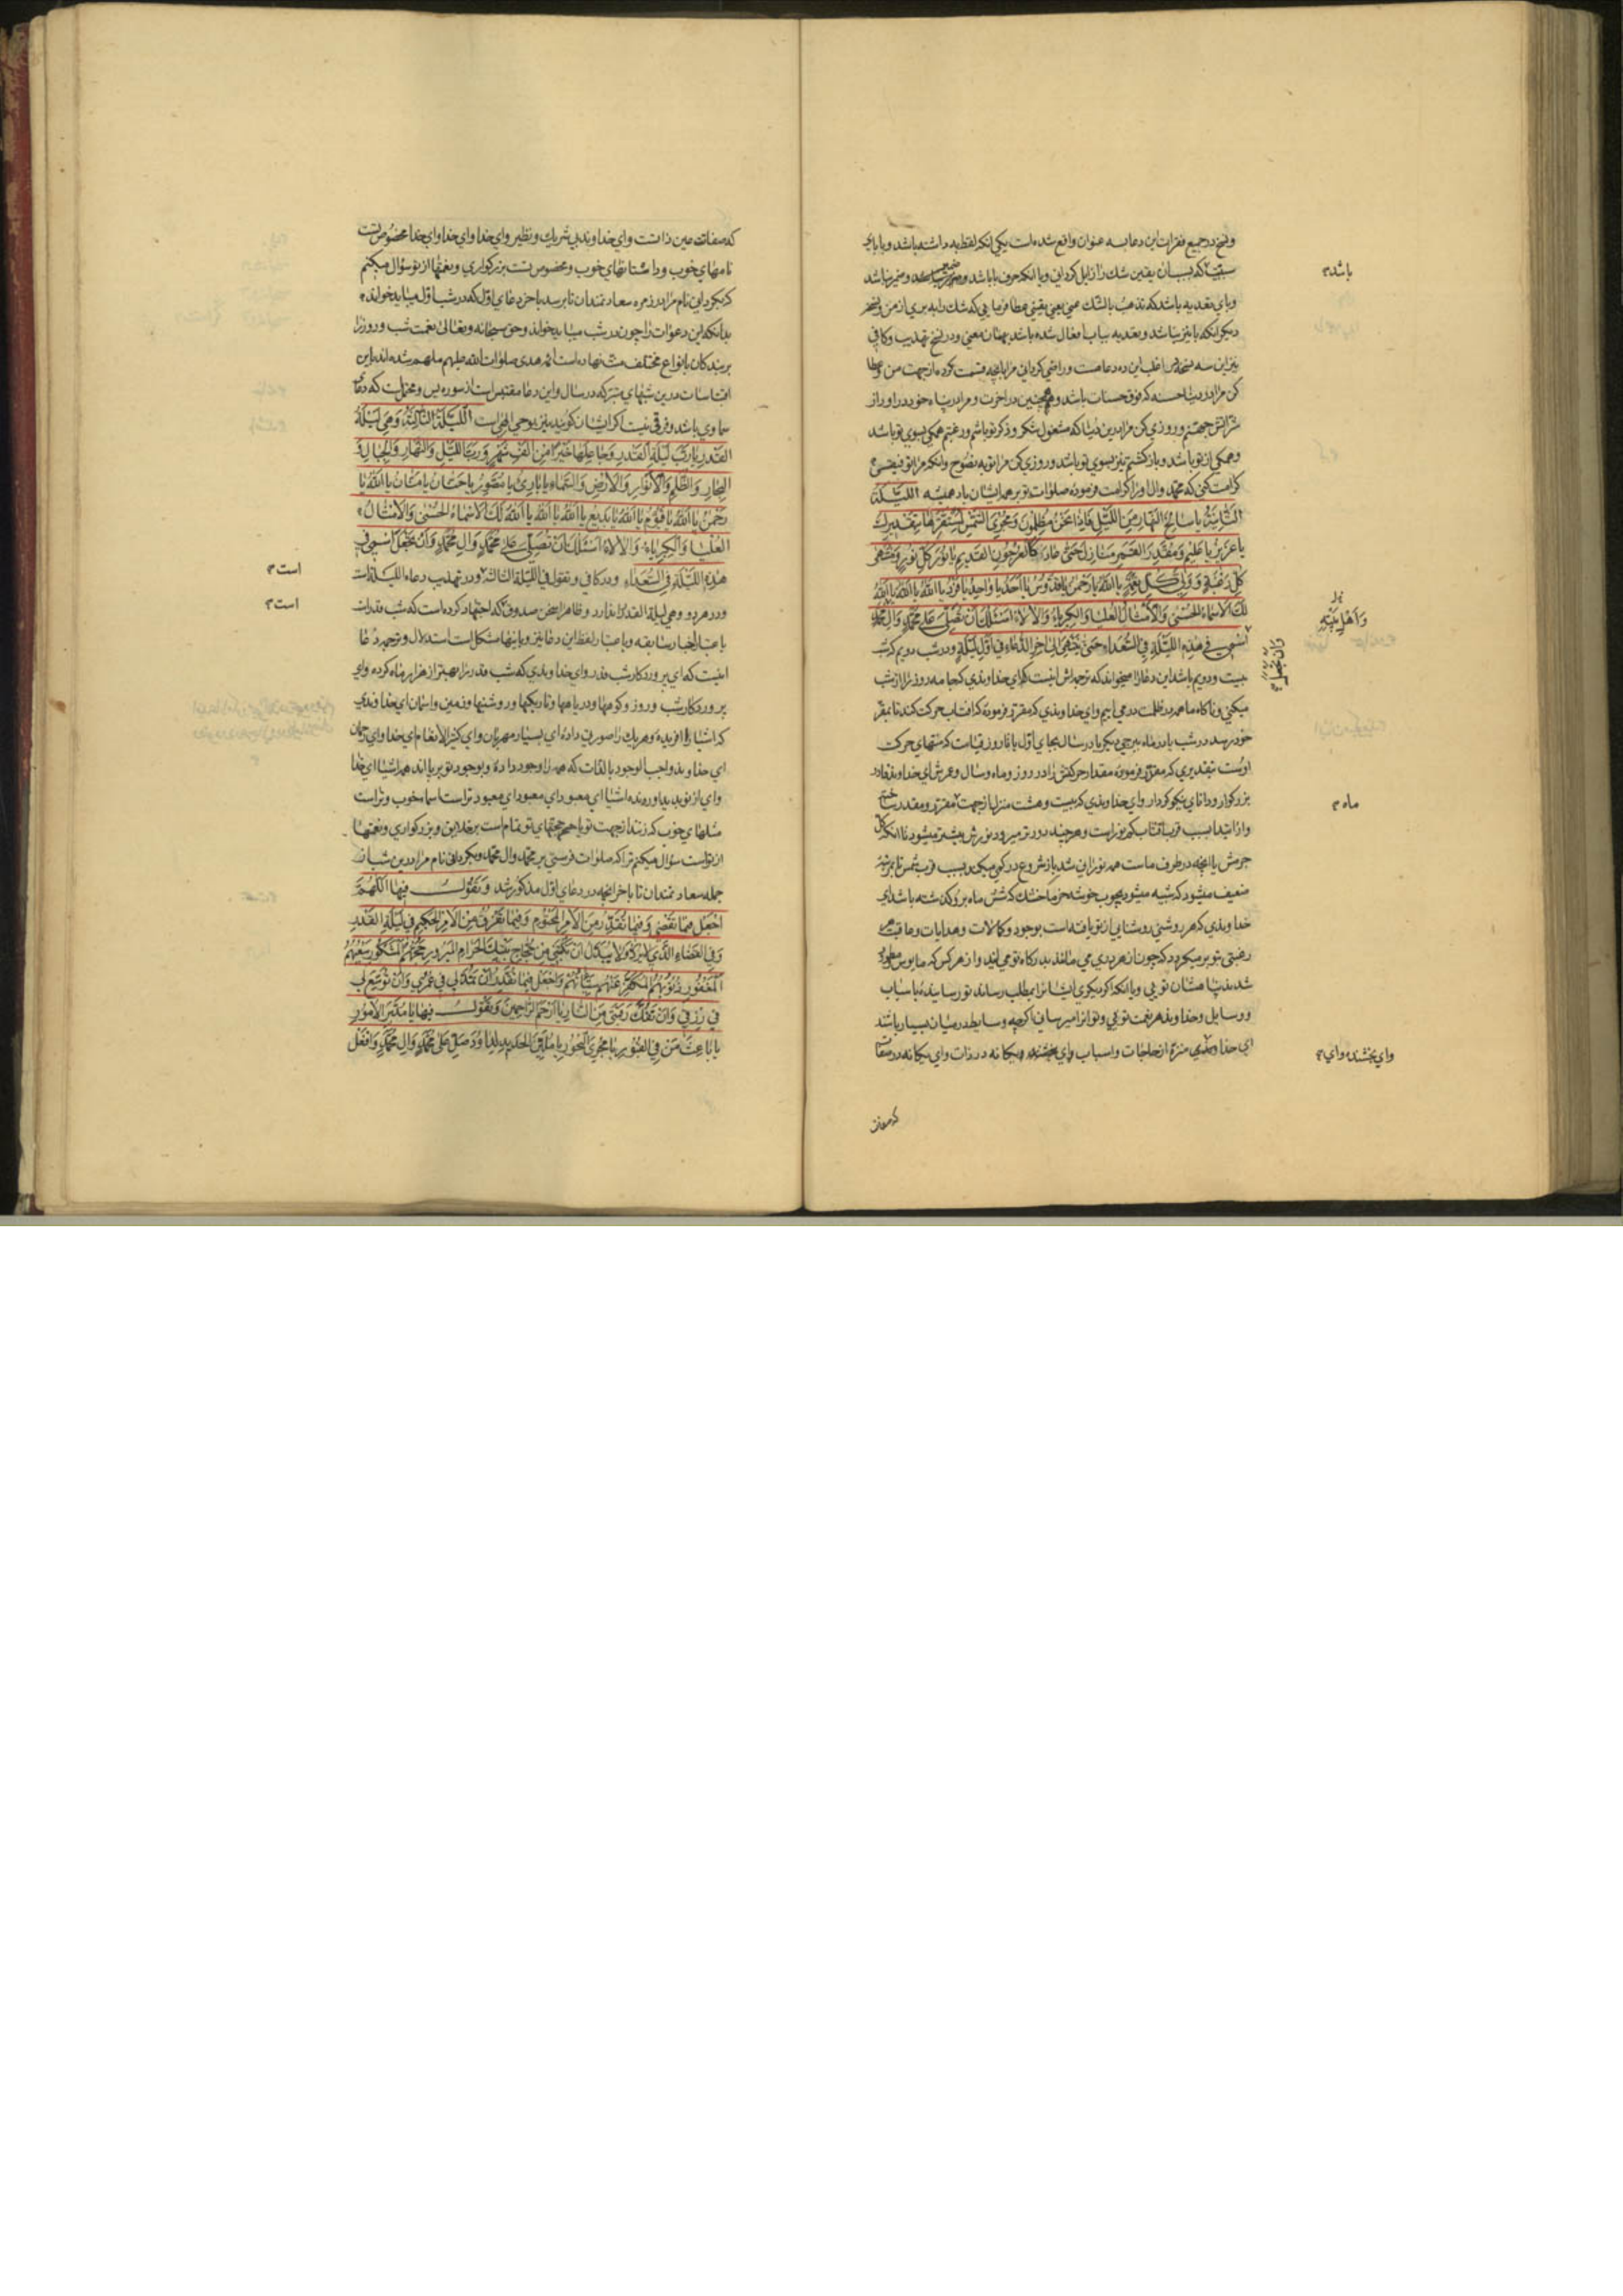 ونسخ در جمیع فقرات این دعا بسه عنوان واقع شده است یکی انکه لفظ به داشته باشد و با بای
سببیت که بسبب ان یقین شک را زایل کردانی و یا انکه حرف با باشد و ضمیر نباشد
باشد م
و بای تعدیه باشد که تذهب بالشک عنی یعنی یقینی عطا فرمایی که شک را به بری از من و نسخهٔ
دیکر انکه با نیز نباشد و تعدیه بباب افعال شده باشد بهمان معنی و در نسخ تهذیب و کافی
کن مرا در دنیا حسنه که فوق حسنات باشد و همچنین در اخرت و مرا در پناه خود در اور از
شر اتش جهنم و روزی کن مرا درین دنیا که مشغول شکر و ذکر تو باشم و رغبتم همکی بسوی تو باشد
و همکی از تو باشد و بازکشتم نیز بسوی تو باشد و روزی کن مرا توبه نصوح و انکه مرا توفیقی
کرامت کنی که محمد و ال او را کرامت فرمودهٔ صلوات تو بر همه ایشان باد همیشه اللیلة
الثانیة یا سالخ النهار من اللیل فاذا نحن مظلمون ومجری الشمس لمستقرها بتقدیرک
یا عزیز یا علیم ومقدر القمر منازل حتی عاد کالعرجون القدیم یا نور کل نور ومنتهی
کل رغبة وولی کل نعمة یا الله یا رحمن یا قدوس یا احد یا واحد یا فرد یا الله یا الله یا الله
لک الاسماء الحسنی والامثال العلیا والکبریاء والالاء اسئلک ان تصلی علی محمد وال محمد
واهل بیته
وان تجعل
اسمی فی هذه اللیلة فی السعداء حتی ینتهی الی اخر الدعاء فی اول لیلة و در شب دویم که شب
بیست و دویم باشد این دعا را میخواند که ترجمه‌اش اینست که ای خداوندی که جامه روز را از شب
میکنی و ناکاه ما همه در ظلمت در می اییم و ای خداوندی که مقرر فرمودهٔ که افتاب حرکت کند تا بمقر
خود رسد در شب یا در ماه ببرجی دیکر یا در سال بجای اول یا تا روز قیامت که منتهای حرکت
اوست بتقدیری که مقرر فرمودهٔ مقدار حرکتش را در روز و ماه و سال و عرش ای خداوند قادر
بزرکوار و دانای نیکو کردار و ای خداوندی که بیست و هشت منزل از جهت مقرر و مقدر ساختهٔ
ماه م
و از ابتدا بسبب قرب افتاب کم نور است و هر چند دورتر میرود نورش بیشتر میشود تا انکه کل
ضعیف میشود که شبیه میشود بچوب خوشه خرما خشک که شش ماه برو کذشته باشد ای
خداوندی که هر روشنی روشنایی از تو یافته است بوجود و کمالات و هدایات و عاقبت هر
رغبتی بتو بر میکردد که چون از هر دری می مانند بدرکاه تو می ایند و از هر کس که مایوس
و وسایل و خداوند هر نعمت تویی و تو انرا میرسانی اکرچه وسایط در میان بسیار باشند
ای خداوندی منزه از حاجات و اسباب و ای یکانه در ذات و ای یکانه در صفات
وای بخشنده وای م
که صفات
که صفات عین ذاتست و ای خداوند بی شریک و نظیر و ای خدا و ای خدا و ای خدا مخصوص تست
نامهای خوب و داستانهای خوب و مخصوص تست بزرکواری و نعمتها از تو سؤال میکنم
که بکردانی نام مرا در زمره سعادتمندان تا برسد باخر دعای اول که در شب اول میباید خواند
بدانکه این دعوات را چون در شب میباید خواند و حق سبحانه و تعالی نعمت شب و روز را
بر بندکان بانواع مختلف منت نهاده است ائمه هدی صلوات الله علیهم ملهم شده اند باین
اقتباسات درین شبهای متبرکه در سال و این دعا مقتبس است از سوره یس و محتمل است که دعای
سماوی باشد و فرقی نیست اکر ایشان کویند نیز بوحی الهی است اللیلة الثالثة وهی لیلة
القدر یا رب لیلة القدر وجاعلها خیرا من الف شهر ورب اللیل والنهار والجبال و
البحار والظلم والانوار والارض والسماء یا باری یا مصور یا حنان یا منان یا الله یا
رحمن یا الله یا قیوم یا الله یا بدیع یا الله یا الله یا الله لک الاسماء الحسنی والامثال
العلیا والکبریاء والالاء اسئلک ان تصلی علی محمد وال محمد وان تجعل اسمی فی
هذه اللیلة فی السعداء و در کافی و تقول فی اللیلة الثالثة و در تهذیب دعاء اللیلة الثالثة
است م
و در هر دو وهی لیلة القدر را ندارد و ظاهرا سخن صدوق که اجتهاد کرده است که شب قدر است
است م
باعتبار اخبار سابقه و باعتبار لفظ این دعا نیز و باینها مشکل است استدلال و ترجمه دعا
اینست که ای پروردکار شب قدر و ای خداوندی که شب قدر را بهتر از هزار ماه کردهٔ و ای
پروردکار شب و روز و کوهها و دریاها و تاریکیها و روشنیها و زمین و اسمان ای خداوندی
که اشیا را افریدهٔ و هر یک را صورتی دادهٔ ای بسیار مهربان و ای کثیر الانعام ای خدا و ای رحمان
ای خداوند واجب الوجود بالذات که همه را وجود دادهٔ و بوجود تو بر پا اند همه اشیا ای خدا
و ای از نو پدید اورنده اشیا ای معبود ای معبود ای معبود تراست اسماء خوب و تراست
مثلهای خوب که زنند از جهت تو یا همه حجتهای تو تمام است بر خلایق و بزرکواری و نعمتها
از تواست سؤال میکنم ترا که صلوات فرستی بر محمد وال محمد و بکردانی نام مرا درین شب از
جمله سعادتمندان تا باخر انچه در دعای اول مذکور شد وتقول فیها اللهم
اجعل فیما تقضی وفیما تقدر من الامر المحتوم وفیما تفرق من الامر الحکیم فی لیلة القدر
وفی القضاء الذی لا یرد ولا یبدل ان تکتبنی من حجاج بیتک الحرام المبرور حجهم المشکور سعیهم
المغفور ذنوبهم المکفر عنهم سیئاتهم واجعل فیما تقدر ان تمد لی فی عمری وان توسع لی
فی رزقی وان تفک رقبتی من النار یا ارحم الراحمین وتقول فیها یا مدبر الامور
یا باعث من فی القبور یا مجری البحور یا ملین الحدید لداود صل علی محمد وال محمد وافعل